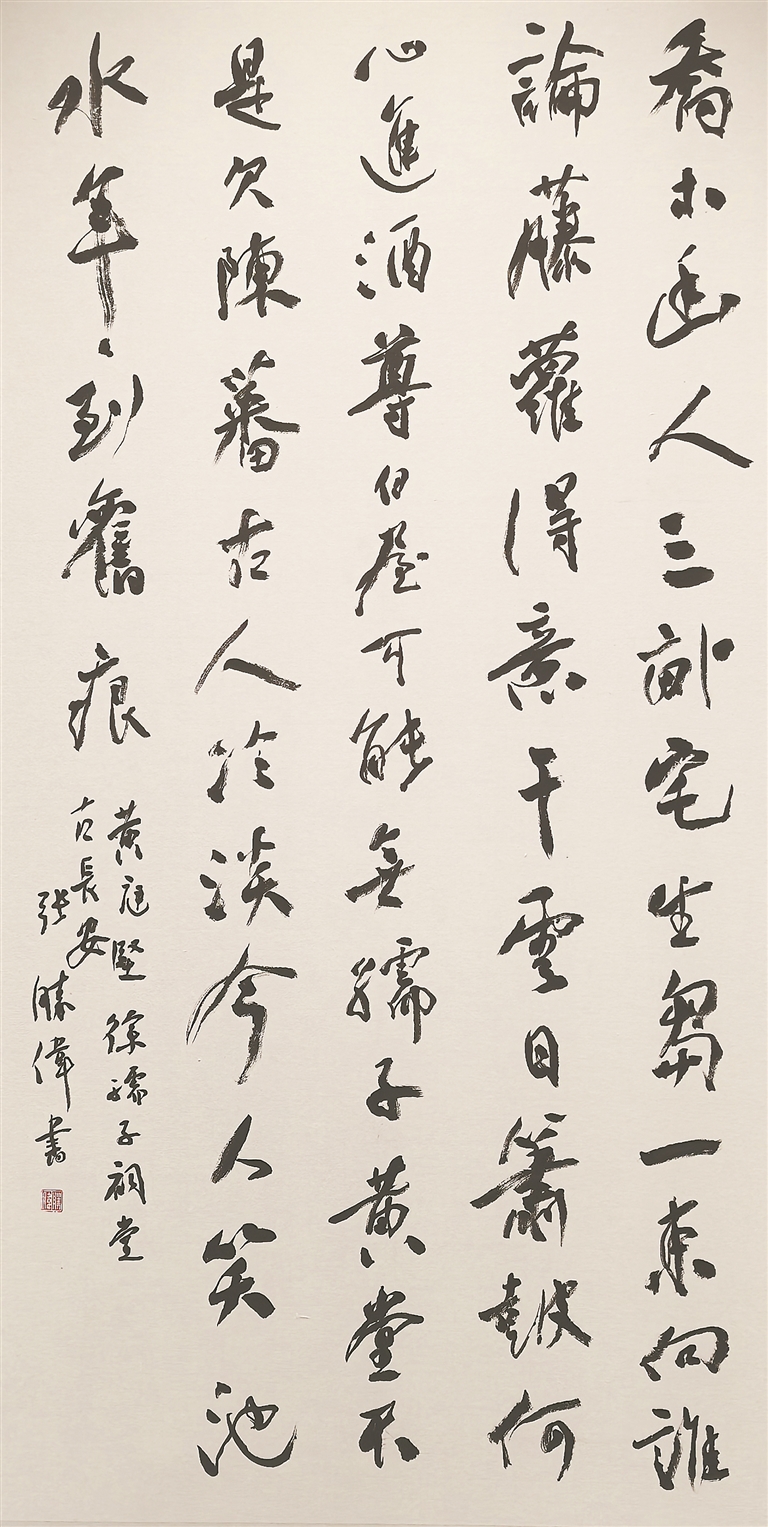 喬木幽人三畝宅生芻一束向誰
論藤蘿得意干雲日簫鼓何
心進酒尊白屋可能無孺子黃堂不
是欠陳蕃古人冷淡今人笑池
水年々到舊痕
黃庭堅徐孺子祠堂
古長安
張勝偉書